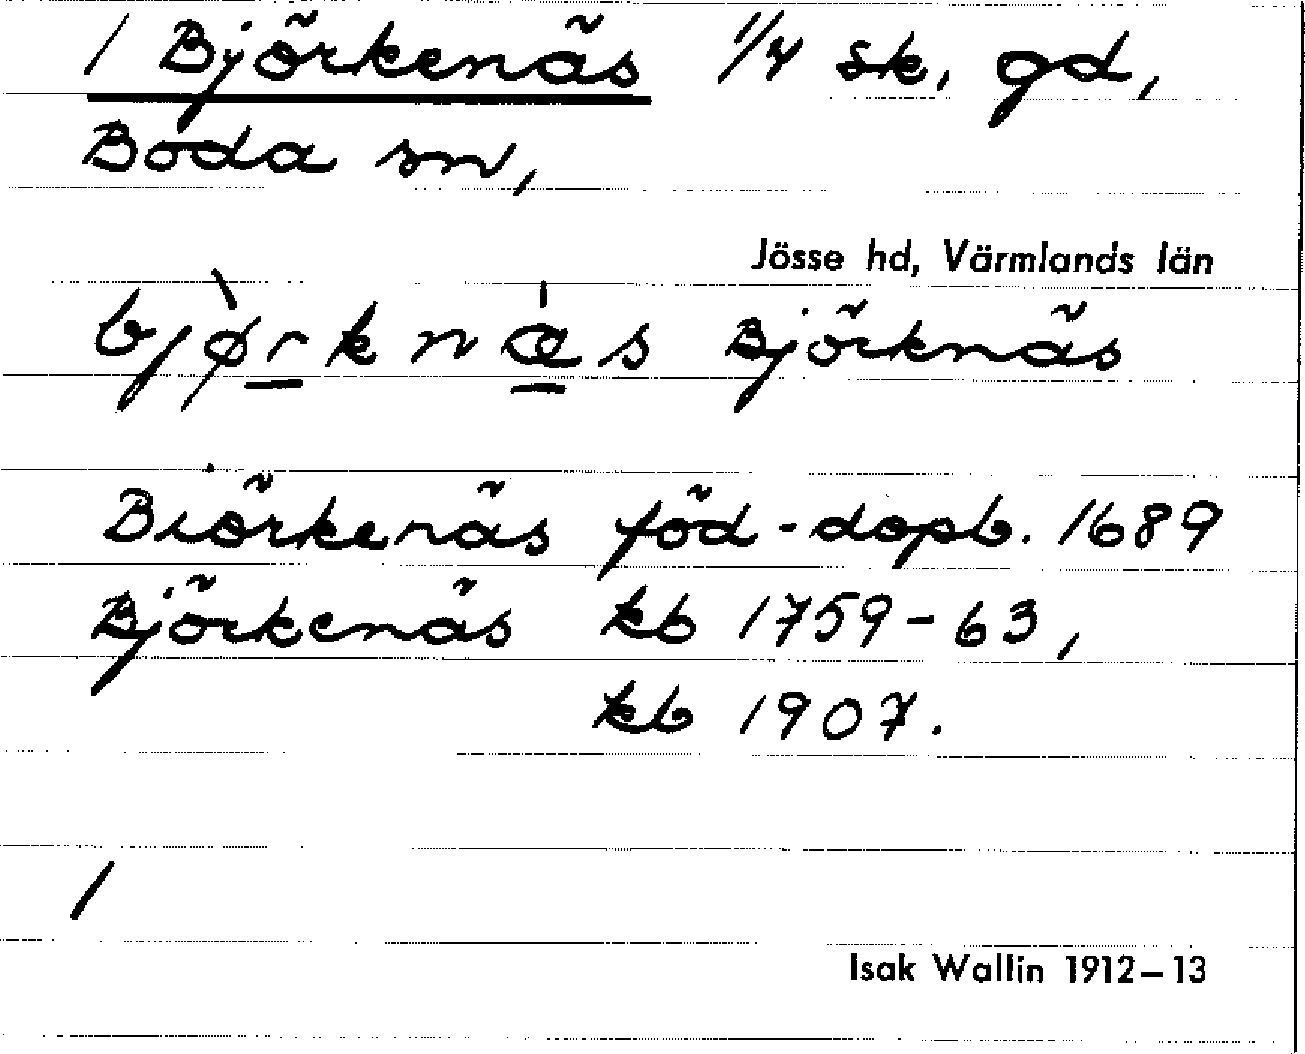 1 Björkenäs 1/4 sk. gd,
Boda sn,
Jösse hd, Värmlands län
bjø̀rknæ̍s Björknäs
Biörkenäs föd-dopb. 1689
Björkenäs kb 1759-63,
kb 1907.
/
Isak Wallin 1912–13